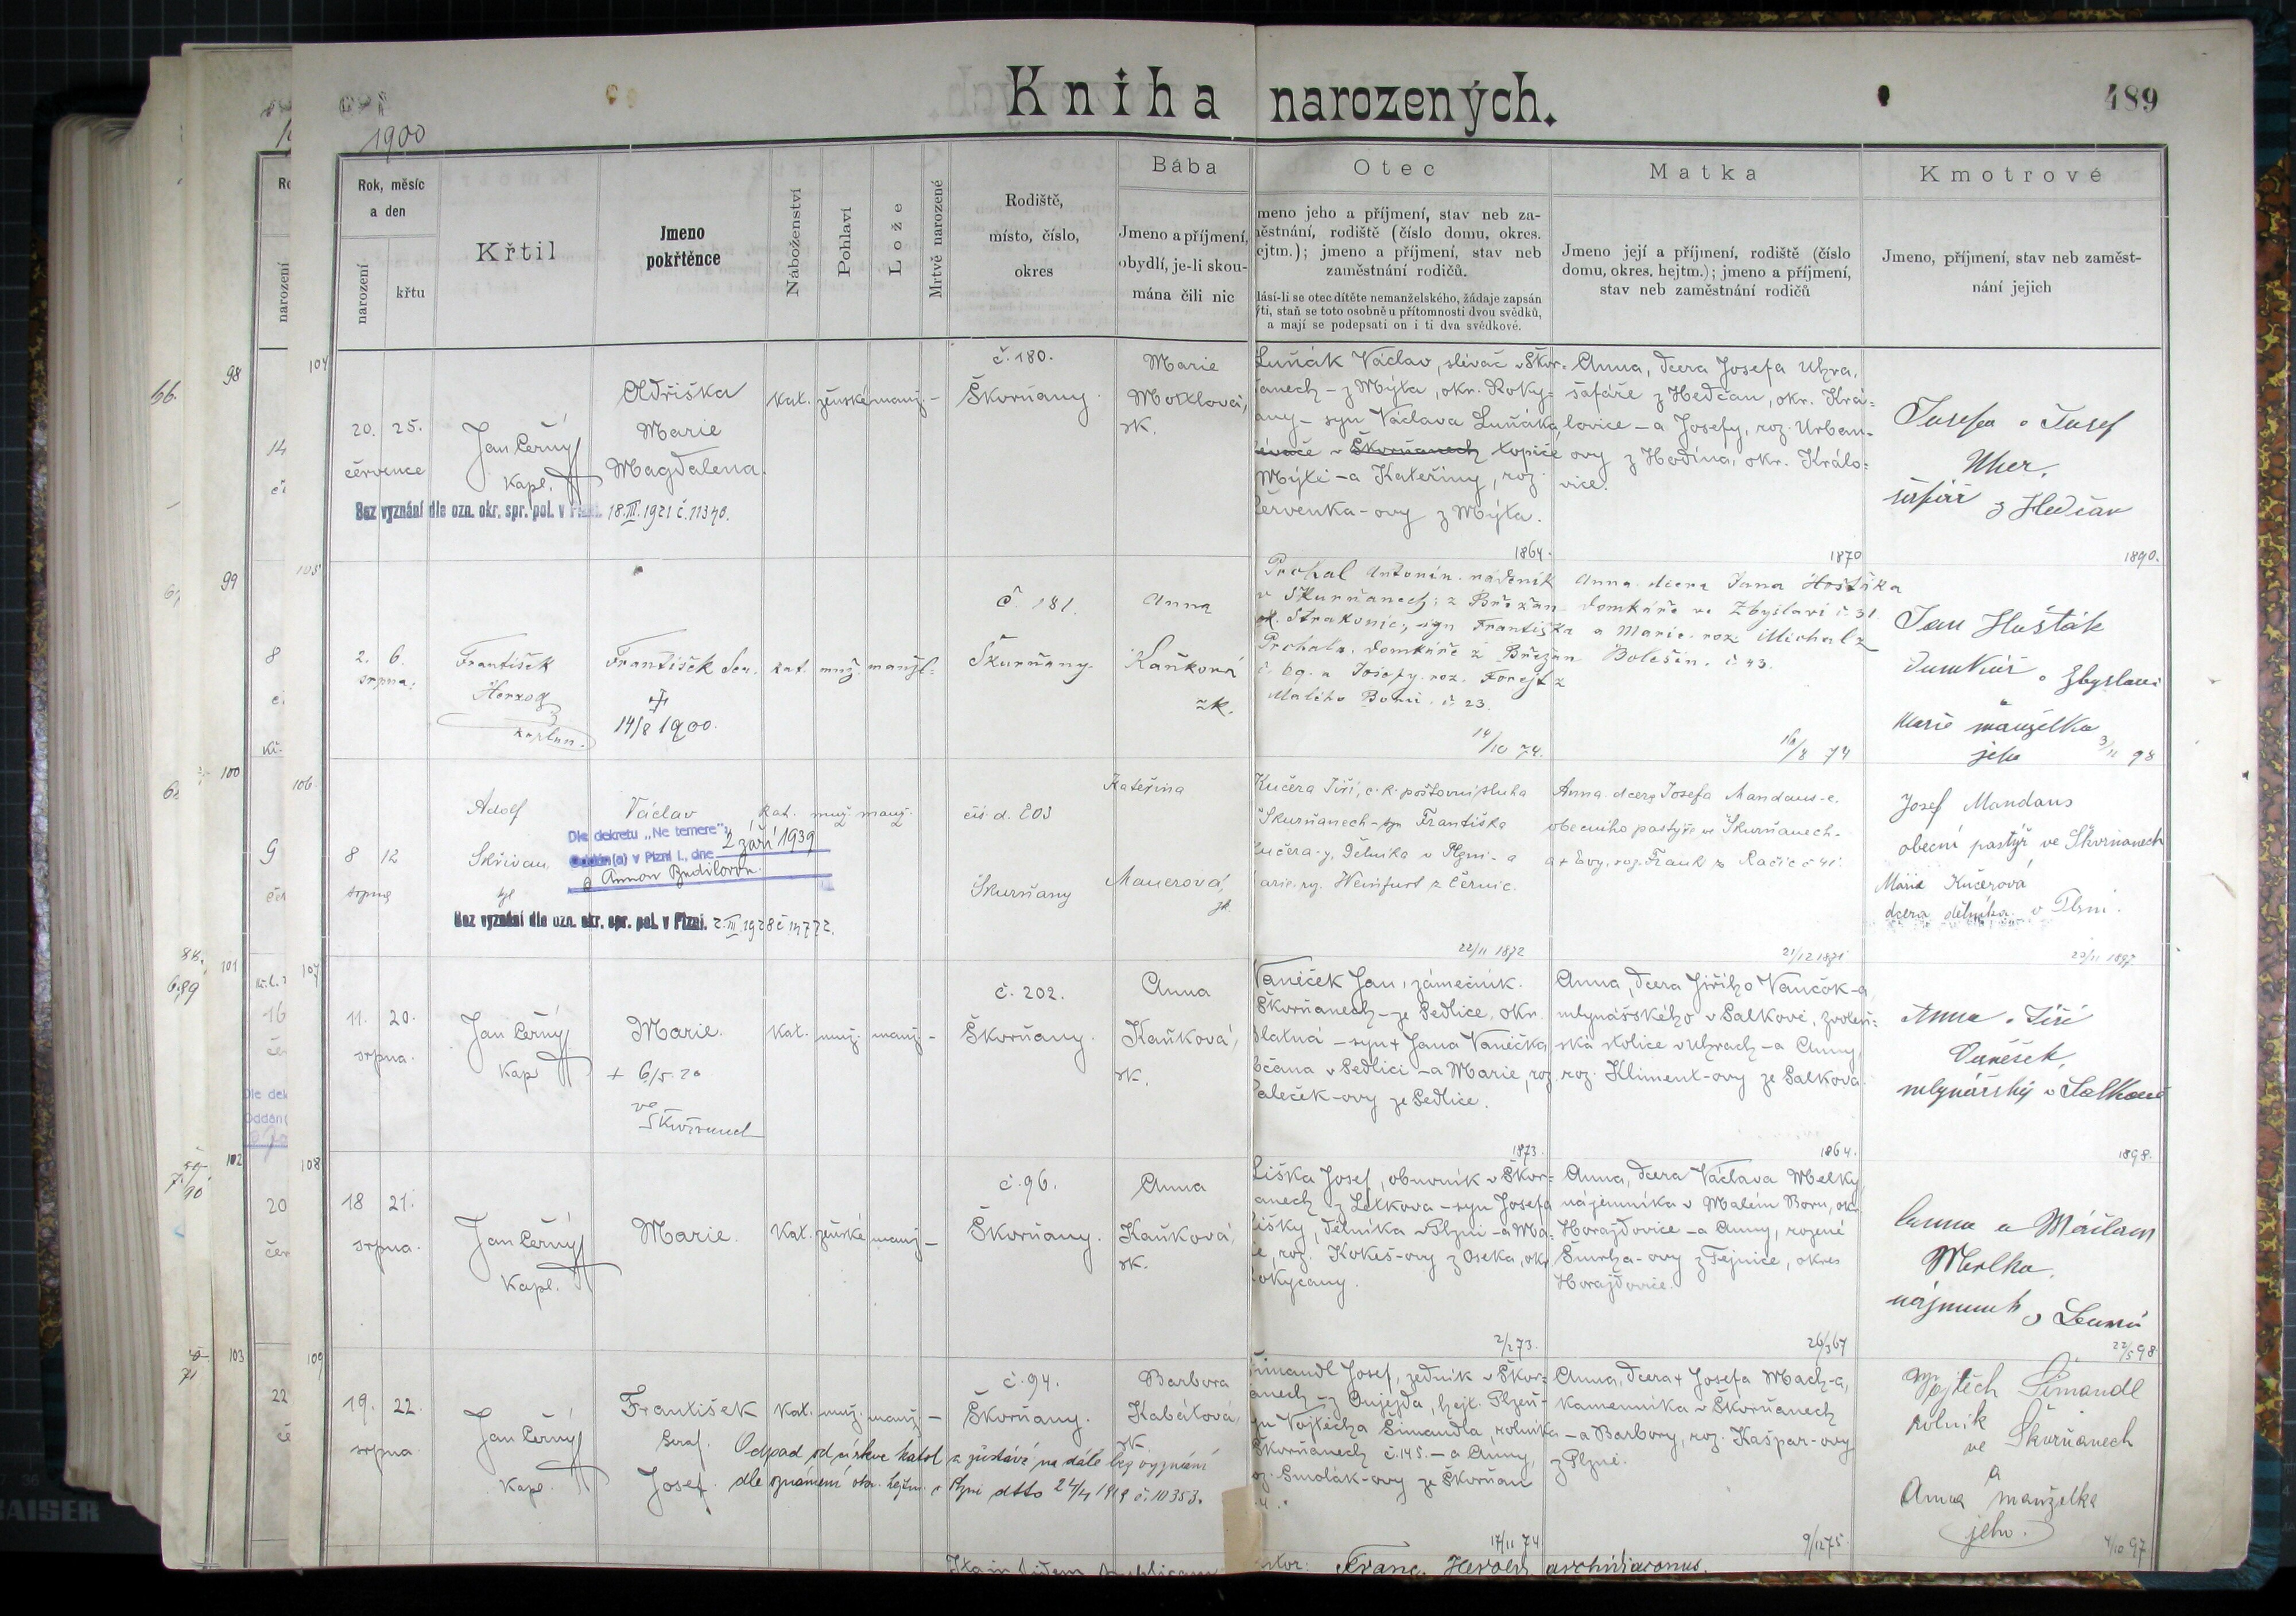 Kniha narozených.
489
1900
Rok, měsíc
a den
narození
křtu
Křtil
Jmeno
pokřtěnce
Náboženství
Pohlaví
Lože
Mrtvě narozené
Rodiště,
místo, číslo,
okres
Bába
Jmeno a příjmení,
obydlí, je-li skou-
mána čili nic
Otec
meno jeho a příjmení, stav neb za-
ěstnání, rodiště (číslo domu, okres.
ejtm.); jmeno a příjmení, stav neb
zaměstnání rodičů.
lásí-li se otec dítěte nemanželského, žádaje zapsán
ýti, staň se toto osobně u přítomnosti dvou svědků,
a mají se podepsati on i ti dva svědkové.
Matka
Jmeno její a příjmení, rodiště (číslo
domu, okres. hejtm.); jmeno a příjmení,
stav neb zaměstnání rodičů
Kmotrové
Jmeno, příjmení, stav neb zaměst-
nání jejich
104
20. 25.
července
Jan Černý
Kapl.
Marie
Magdalena.
kat. ženské manž. -
č. 180.
Škvrňany.
Marie
zk.
Luňák Václav, slévač v Škvr-
anech - z Mýta, okr. Roky-
any - syn Václava Luňáka,
Škvrňanech topiče
Mýtě - a Kateřiny, roz.
Červenka-ovy z Mýta.
1864.
Anna, dcera Josefa Uhra,
šafáře z Hedčan, okr. Krá-
lovice - a Josefy, roz. Urban-
ovy z Hodina, okr. Králo-
vice.
1870
Josefa a Josef
Uher,
šafář z Hedčan
1890.
Bez vyznání dle ozn. okr. spr. pol. v Plzni. 18.III.1921 č. 11340.
105
2. 6.
srpna.
František
Herzog
kaplan.
František Ser.
14/8 1900.
kat. muž. manžel.
č. 181.
Škvrňany.
Anna
Kaňková
zk.
Prchal Antonín. nádeník
v Škvrňanech; z Břežan
ok. Strakonic; syn Františka
Prchala, domkáře z Břežan
č. 69. a Josefy. roz. Forejt z
Malého Boru. č. 23.
14/10 74.
Anna dcera Jana Hošťáka
domkáře ve Zbyslavi č. 31.
a Marie. roz. Michal z
Bolešin. č. 43.
16/8 74
Jan Hošták
domkář v Zbyslavi
Marie manželka
jeho
3/11 98
106
8 12
srpna
Adolf
Skřivan,
Václav
kat. muž. manž.
Dle dekretu „Ne temere":
Oddán(a) v Plzni I., dne 2 září 1939
Bez vyznání dle ozn. okr. spr. pol. v Plzni. 2.III.1928 č 14772.
Škvrňany
Kateřina
Mauerová,
zk.
Kučera Jiří, c.k. poštovní sluha
Škvrňanech - syn Františka
učera-y, dělníka v Plzni - a
arie roz. Weinfurt z Černic.
22/11 1872
Anna dcera Josefa Mandaus-e,
obecního pastýře ve Škvrňanech -
a + Evy, roz. Frank z Račic č 41.
21/12 1871
Josef Mandaus
obecní pastýř ve Škvrňanech
Marie Kučerová
dcera dělníka v Plzni.
1897
107
11. 20.
srpna.
Jan Černý
Kap
Marie.
+ 6/5. 20
ve
kat. muž. manž. -
č. 202.
Škvrňany.
Anna
Kaňková,
zk.
Vaněček Jan, zámečník.
Škvrňanech - ze Sedlice, okr.
Blatná - syn + Jana Vaněčka
občana v Sedlici - a Marie, roz.
aleček-ovy ze Sedlice.
1873.
Anna, dcera Jiřího Vančok-a
mlynářského v Salkově, zvoleň-
ská stolice v Uhrách - a Anny,
roz. Kliment-ovy ze Salkova.
1864.
Anna a Jiří
mlynářský v Salkově
1898.
108
18 21.
srpna.
Jan Černý
Kapl.
Marie.
Kat. ženské manž -
č. 96.
Škvrňany.
Anna
Kaňková,
zk.
Liška Josef, obuvník v Škvr-
anech z Letkova - syn Josefa
Lišky, dělníka v Plzni - a Ma-
ie, roz. Kokeš-ovy z Oseka, okr
okycany.
2/2 73.
Anna, dcera Václava Melky
nájemníka v Malém Boru, okr
Horažďovice - a Anny, rozené
Smrha-ovy z Tejnice, okres
Horažďovice.
26/3 67
Anna a Václav
22/5 98
109
19. 22.
srpna
Jan Černý
Kapl.
František
Seraf.
Josef.
Kat. muž. manž -
č. 94.
Škvrňany.
Barbora
Kabátová,
zk.
Odpad od církve katol a zůstává na dále bez vyznání
dle oznámení okr. hejtm. v Plzni dtto 24/4 1919 č. 10353.
Šimandl Josef, zedník v Škvr-
anech - z Oujezda, hejt. Plzeň -
syn Vojtěcha Šimandla, rolníka
Škvrňanech č. 145. - a Anny,
oz. Smolák-ovy ze Škvrňan
17/11 74
Anna, dcera + Josefa Mach-a,
kameníka v Škvrňanech
- a Barbory, roz. Kašpar-ovy
z Plzně.
9/11 75
Vojtěch Šimandl
rolník
ve Škvrňanech
a
Anna manželka
jeho.
4/10 97
Franc. Herold archidiaconus.
98
99
100
101
102
103